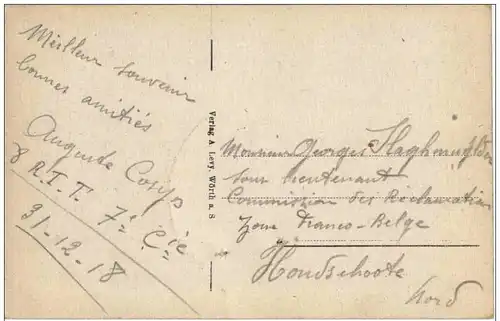 Meilleur souvenir
bonnes amitiés
Auguste Corps
8 R.I.T. 7e Cie
31-12-18
Verlag A. Levy, Wörth a. S
Monsieur Georges
sous lieutenant
Commission des Réclamations
Zone Franco-Belge
Hondschoote
Nord